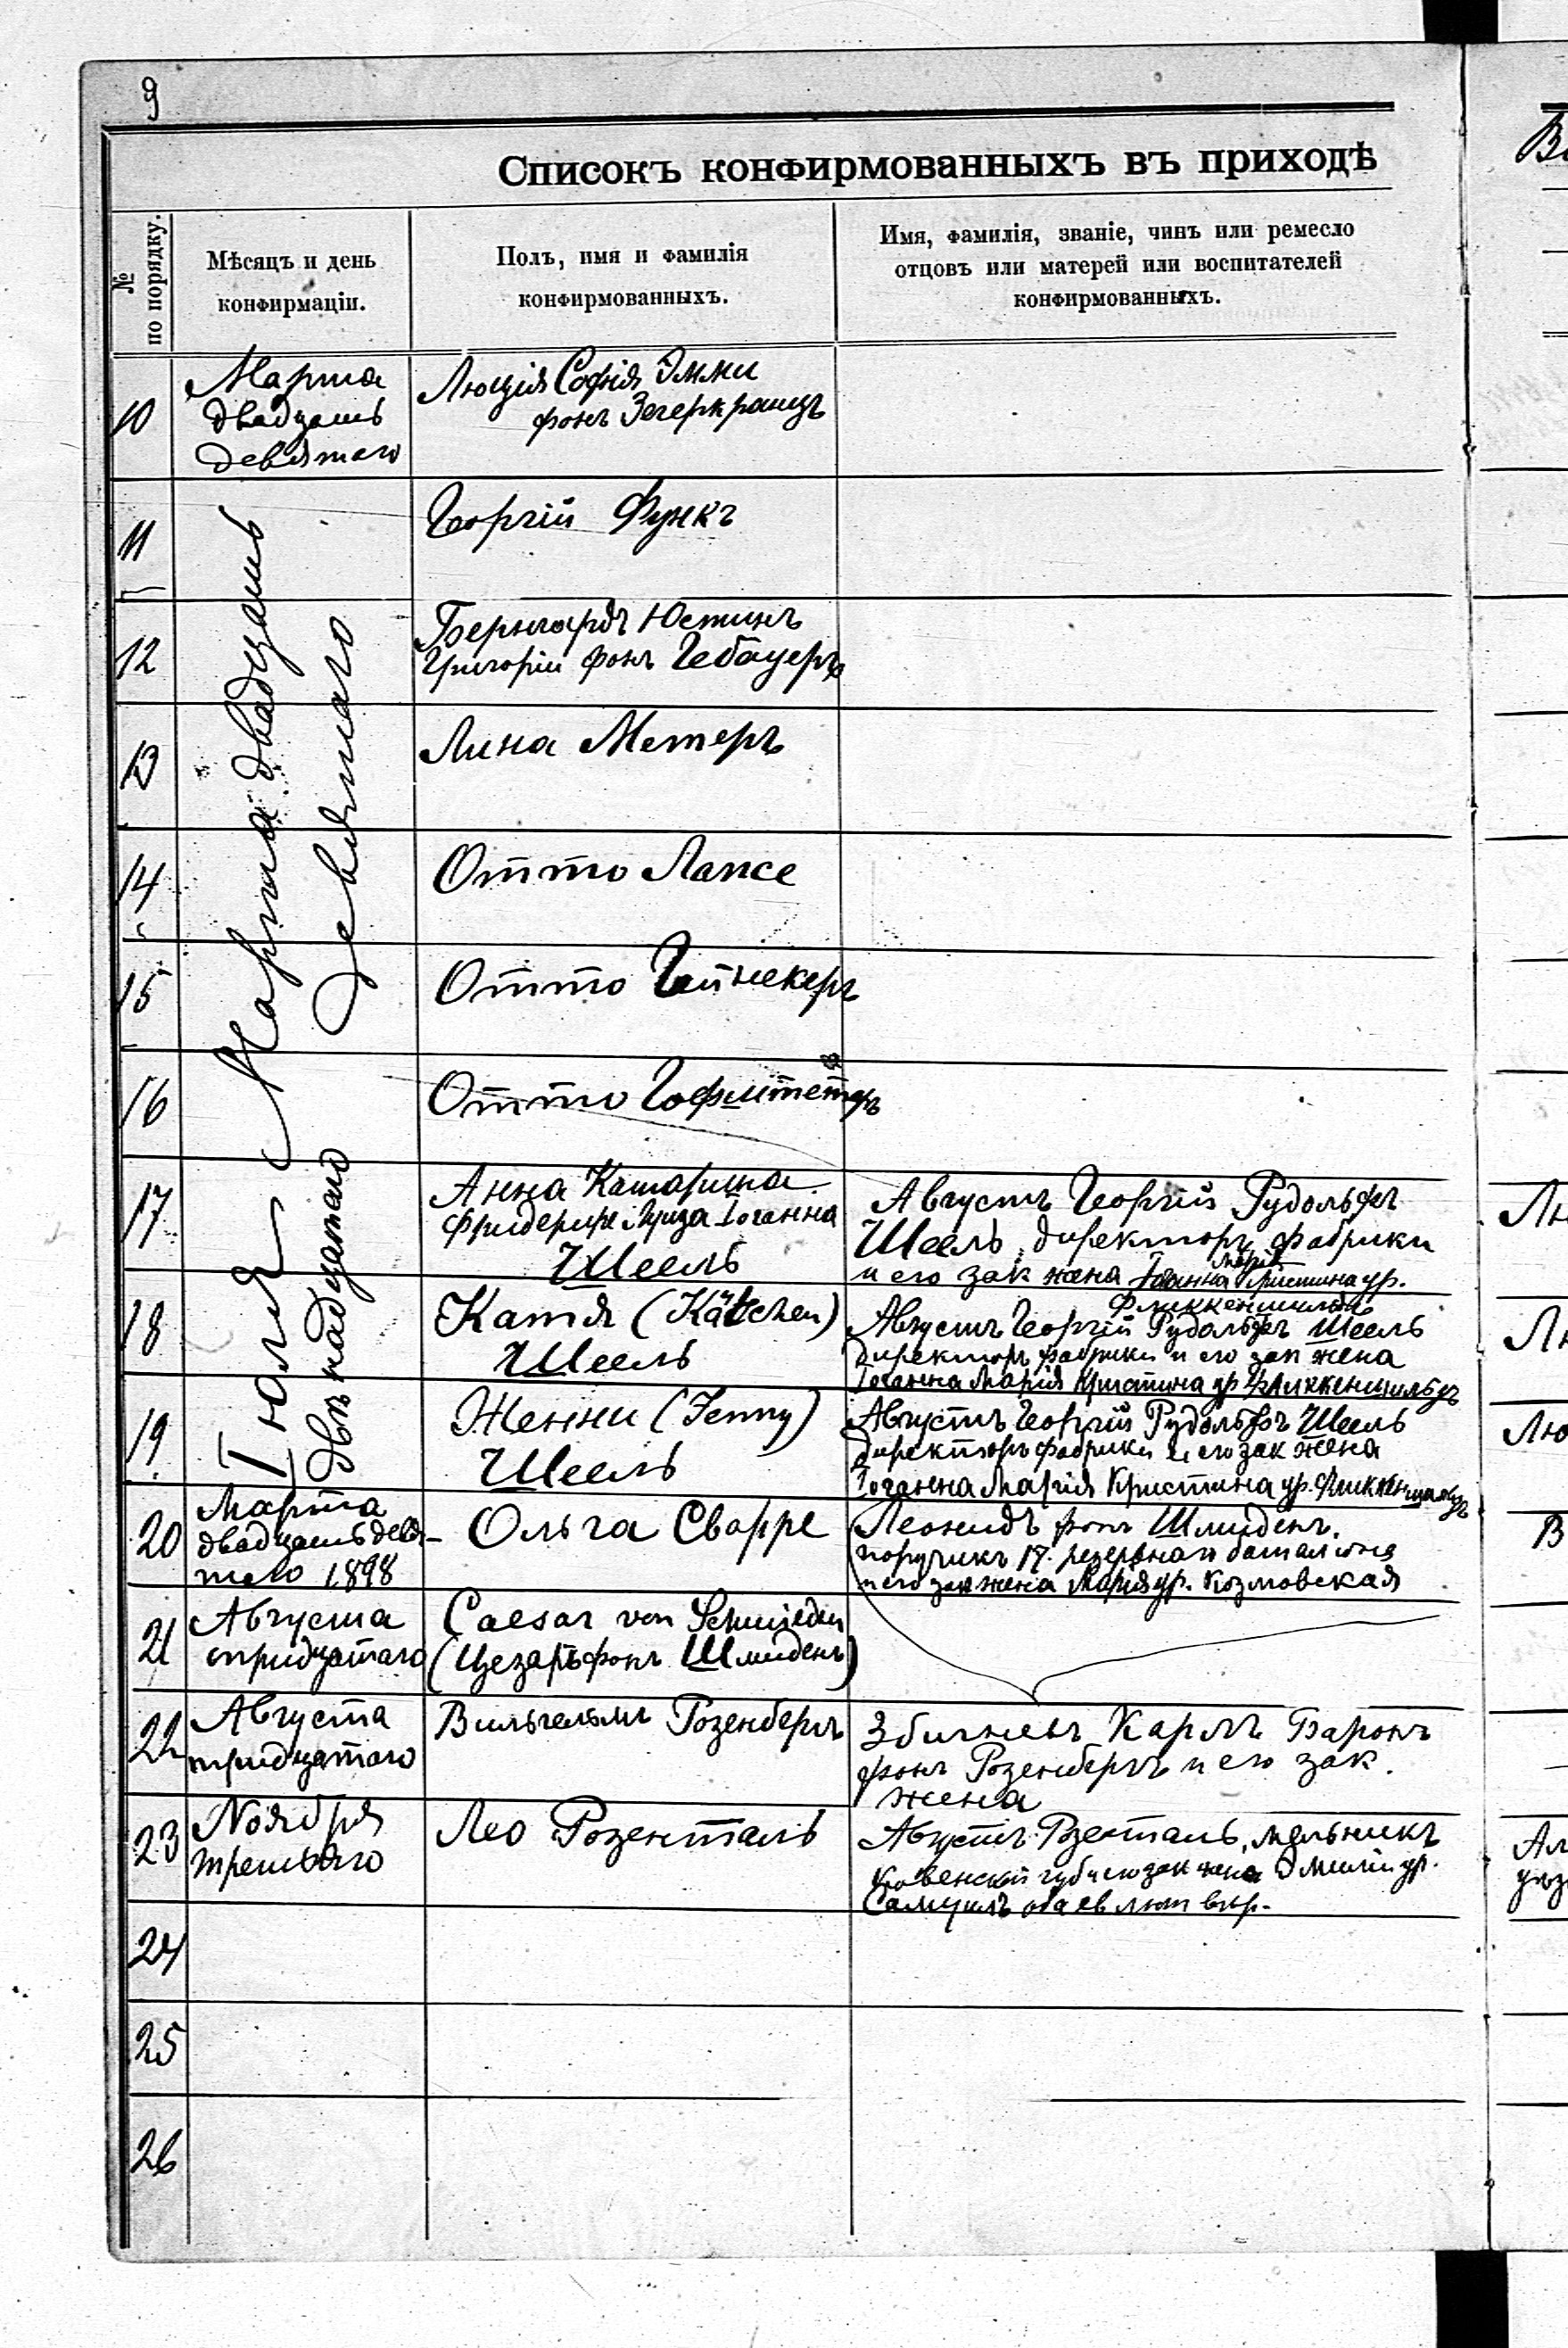 9
Списокъ конфирмованныхъ въ приходѣ
№ по порядку.
Мѣсяцъ и день
конфирмаціи.
Полъ, имя и фамилія
конфирмованныхъ.
Имя, фамилія, званіе, чинъ или ремесло
отцовъ или матерей или воспитателей
конфирмованныхъ.
10
Марта
двадцать
девятаго
Люція Софія Эмми
фонъ Зегеркранцъ
Марта двадцать
девятаго
11
Георгій Функъ
12
Бернгардъ Юстинъ
Григорій фонъ Гебауеръ
13
Лина Метеръ
14
Отто Лапсе
15
Отто Гейнекеръ
16
Отто
Іюля
двѣнадцатаго
17
Анна Катарина
Фридерике Луиза Іоганна
Шеель
Августъ Георгій Рудольфъ
Шеель, директоръ фабрики
и его зак жена Іоганна Марія Кристина ур.
Фликкеншильдъ
18
Катя (Kätchen)
Шеель
Августъ Георгій Рудольфъ Шеель
директоръ фабрики и его зак жена
Іоганна Марія Кристина ур Фликкеншильдъ
19
Женни (Jenny)
Шеель
Августъ Георгій Рудольфъ Шеель
директоръ фабрики и его зак жена
Іоганна Марія Кристина ур. Фликкеншильдъ
20
Марта
двадцать девя-
таго 1898
Ольга Сварре
Леонидъ фонъ Шмиденъ,
поручикъ 17. резервнаго баталіона
и его зак жена Марія ур. Козмовская
21
Августа
тридцатаго
Caesar von Schmieden
(Цезарь фонъ Шмиденъ)
22
Августа
тридцатаго
Вильгельмъ Розенбергъ
Збигневъ Карлъ Баронъ
фонъ Розенбергъ и его зак.
жена
23
Ноября
третьяго
Лео Розенталь
Августъ Розенталь, мельникъ
Ковенской губ и его зак жена Эмилія ур.
оба ев лют вѣр.
24
25
26